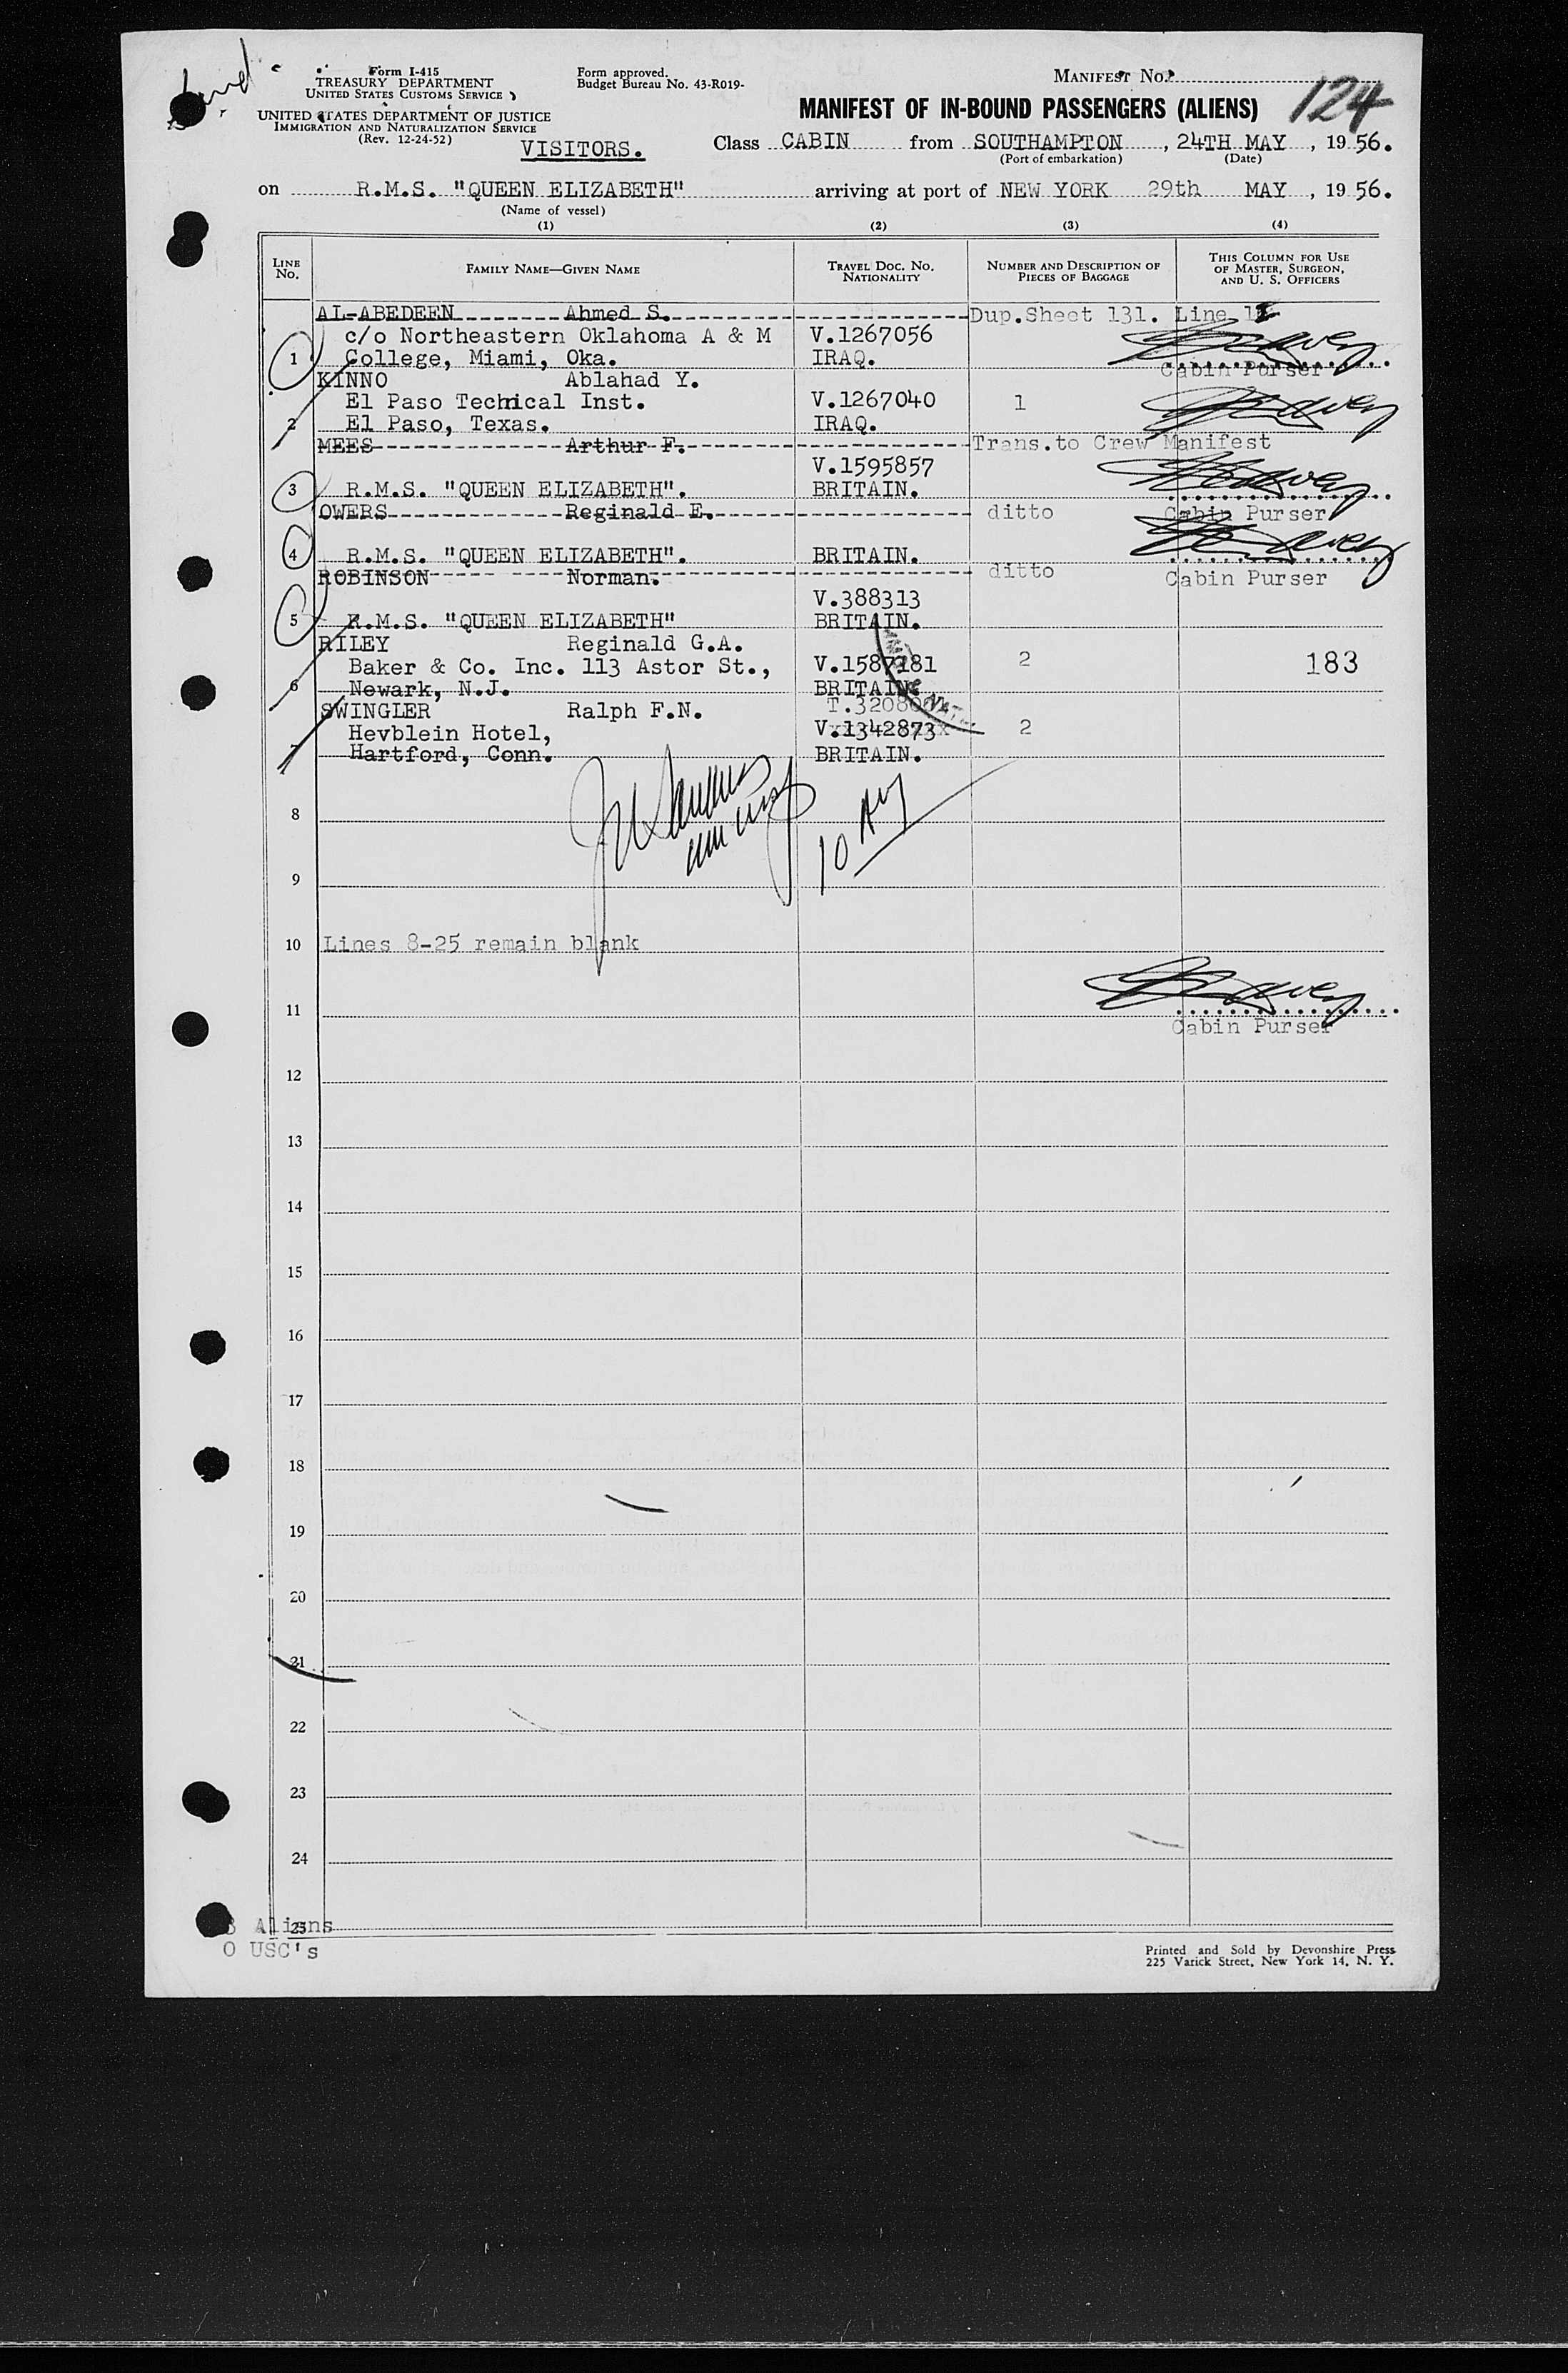 Form I-415
TREASURY DEPARTMENT
UNITED STATES CUSTOMS SERVICE
UNITED STATES DEPARTMENT OF JUSTICE
IMMIGRATION AND NATURALIZATION SERVICE
(Rev. 12-24-52)
VISITORS.
Form approved.
Budget Bureau No. 43-R019-
MANIFEST No.
124
MANIFEST OF IN-BOUND PASSENGERS (ALIENS)
Class CABIN from SOUTHAMPTON, 24TH MAY, 1956.
(Port of embarkation) (Date)
on R.M.S. "QUEEN ELIZABETH" arriving at port of NEW YORK 29th MAY, 1956.
(Name of vessel)
(1) (2) (3) (4)
LINE No. FAMILY NAME—GIVEN NAME TRAVEL DOC. NO. NATIONALITY NUMBER AND DESCRIPTION OF PIECES OF BAGGAGE THIS COLUMN FOR USE OF MASTER, SURGEON, AND U. S. OFFICERS
AL-ABEDEEN Ahmed S. Dup.Sheet 131. Line
c/o Northeastern Oklahoma A & M V.1267056
1 College, Miami, Oka. IRAQ. Cabin Purser
KINNO Ablahad Y.
El Paso Techical Inst. V.1267040 1
2 El Paso, Texas. IRAQ.
MEES Arthur F. Trans.to Crew Manifest
V.1595857
3 R.M.S. "QUEEN ELIZABETH". BRITAIN.
OWERS Reginald E. ditto Cabin Purser
4 R.M.S. "QUEEN ELIZABETH". BRITAIN.
ROBINSON Norman. ditto Cabin Purser
V.388313
5 R.M.S. "QUEEN ELIZABETH" BRITAIN.
RILEY Reginald G.A.
Baker & Co. Inc. 113 Astor St., V.1587181 2 183
6 Newark, N.J. BRITAIN.
SWINGLER Ralph F.N.
Hevblein Hotel, V.1342873 2
7 Hartford, Conn. BRITAIN.
8
9
10 Lines 8-25 remain blank
11
Cabin Purser
12
13
14
15
16
17
18
19
20
21
22
23
24
25
Aliens
0 USC's
Printed and Sold by Devonshire Press
225 Varick Street, New York 14, N. Y.